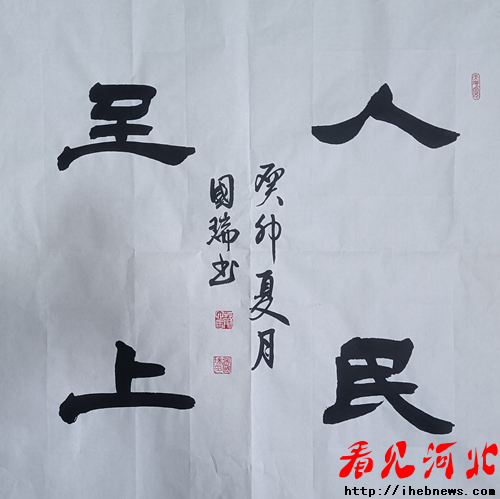 人民
至上
癸卯夏月
國瑞书
看见河北
http://ihebnews.com